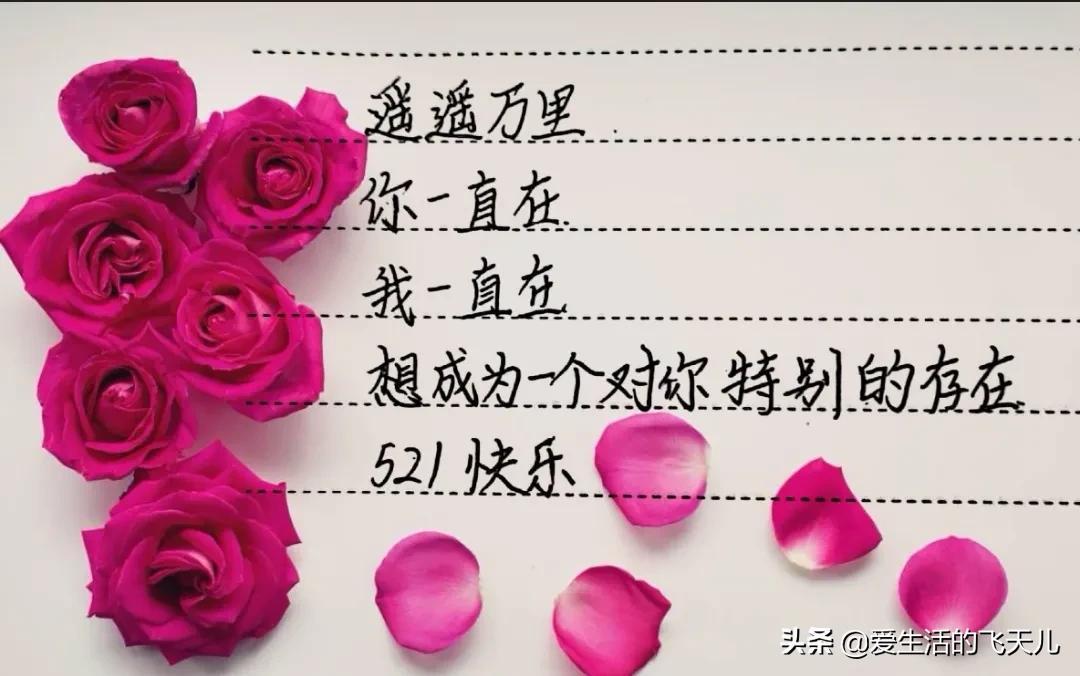 遥遥万里
你一直在
我一直在
想成为一个对你特别的存在
521快乐
头条 @爱生活的飞天儿